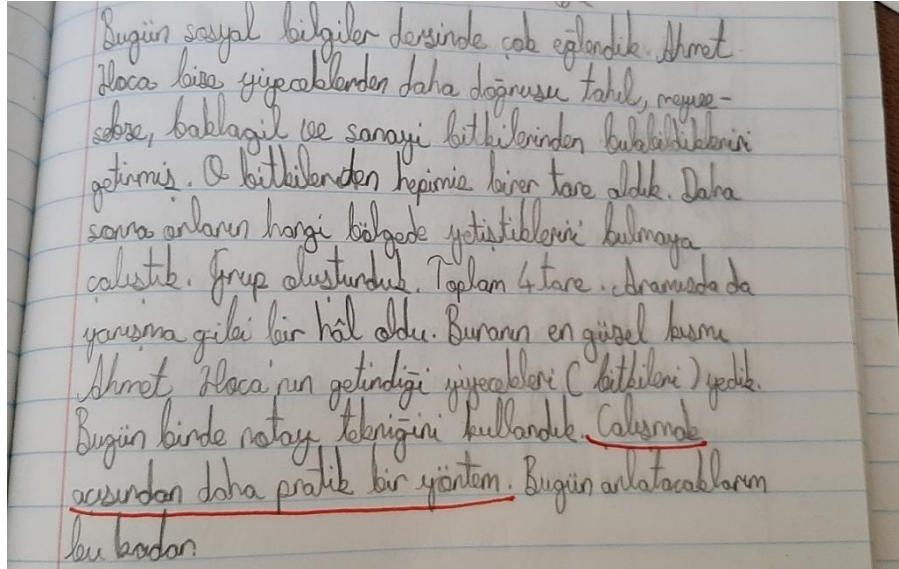 Bugün sosyal bilgiler dersinde çok eğlendik. Ahmet
Hoca bize yiyeceklerden daha doğrusu tahıl, meyve-
sebze, baklagil ve sanayi bitkilerinden bulabildiklerini
getirmiş. O bitkilerden hepimiz birer tane aldık. Daha
sonra onların hangi bölgede yetiştiklerini bulmaya
çalıştık. Grup oluşturduk. Toplam 4 tane. Aramızda da
yarışma gibi bir hâl oldu. Buranın en güzel kısmı
Ahmet Hoca'nın getirdiği yiyecekleri (bitkileri) yedik.
Bugün birde notay tekniğini kullandık. Çalışmak
açısından daha pratik bir yöntem. Bugün anlatacaklarım
bu kadar